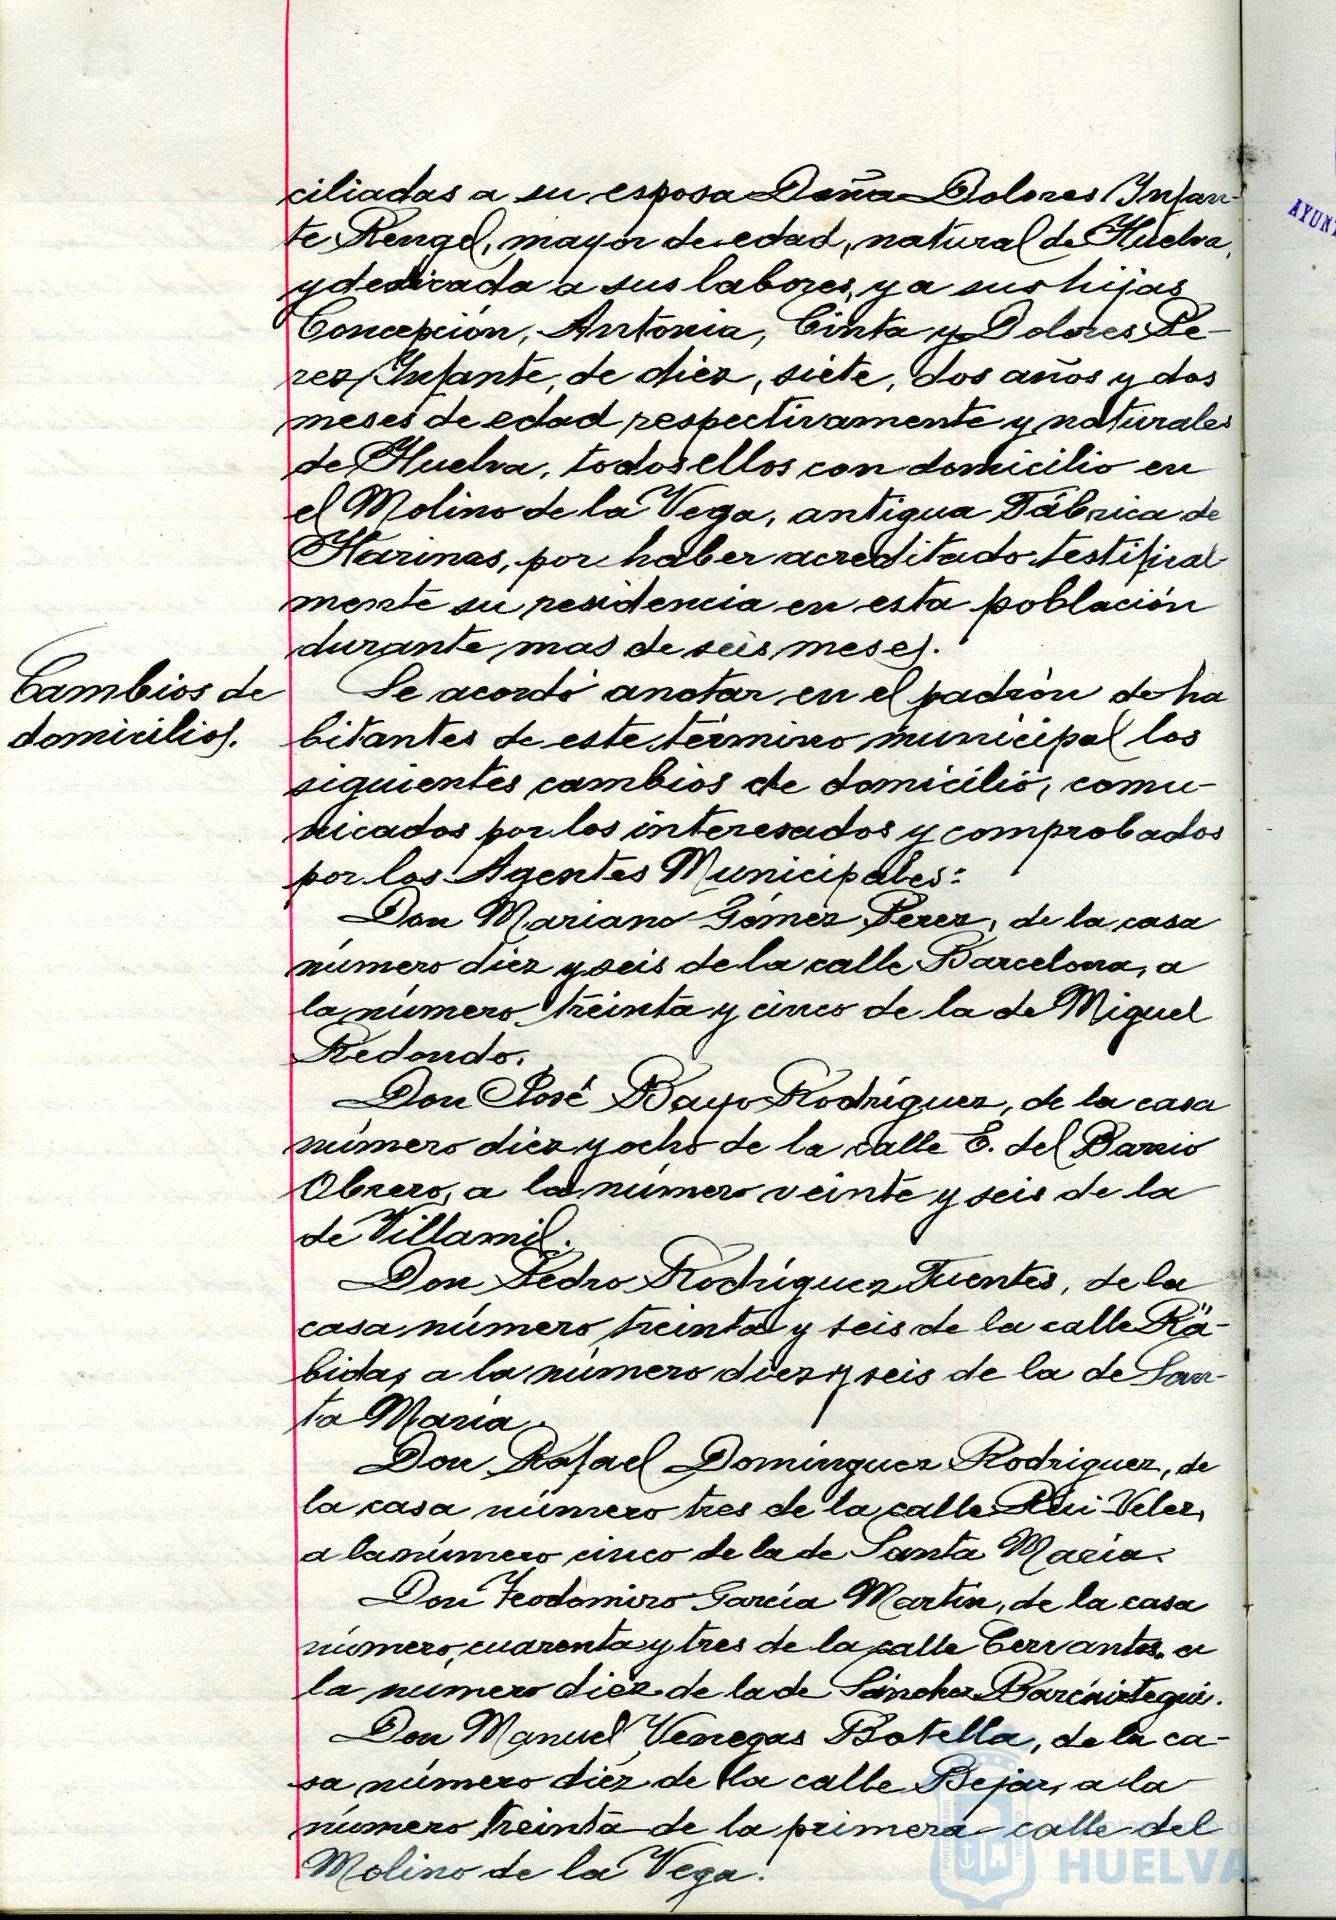 ciliadas a su esposa Doña Dolores Infan-
te Rengel, mayor de edad, natural de Huelva,
y dedicada a sus labores, y a sus hijas
Concepción, Antonia, Cinta y Dolores Pe-
rez Infante, de diez, siete, dos años y dos
meses de edad respectivamente y naturales
de Huelva, todos ellos con domicilio en
el Molino de la Vega, antigua Fábrica de
Harinas, por haber acreditado testifical-
mente su residencia en esta población
durante mas de seis meses.
Cambios de
domicilios.
Se acordó anotar en el padrón de ha
bitantes de este término municipal los
siguientes cambios de domicilio, comu-
nicados por los interesados y comprobados
por los Agentes Municipales:
Don Mariano Gómez Perez, de la casa
número diez y seis de la calle Barcelona, a
la número treinta y cinco de la de Miguel
Redondo.
Don José Bayo Rodríguez, de la casa
número diez y ocho de la calle E. del Barrio
Obrero, a la número veinte y seis de la
de Villamil.
Don Pedro Rodríguez Fuentes, de la
casa número treinta y seis de la calle Rá-
bida, a la número diez y seis de la de San-
ta María.
Don Rafael Domínguez Rodriguez, de
la casa número tres de la calle Rui Velez,
a la número cinco de la de Santa María.
Don Teodomiro García Martín, de la casa
número cuarenta y tres de la calle Cervantes a
la número diez de la de Sánchez Barcáiztegui.
Don Manuel Venegas Botella, de la ca-
sa número diez de la calle Bejar, a la
número treinta de la primera calle del
Molino de la Vega.
AYUNT
HUELVA